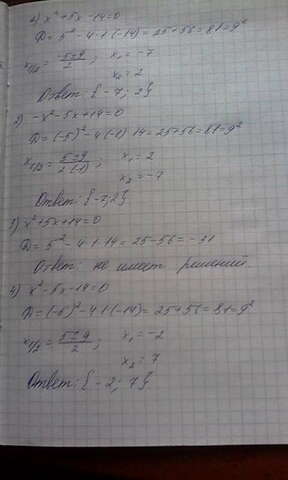 1) x²+5x-14=0
D=5²-4·1·(-14)=25+56=81=9²
x₁/₂=(-5±9)/2; x₁=-7
x₂=2
Ответ: {-7; 2}
2) -x²-5x+14=0
D=(-5)²-4(-1)·14=25+56=81=9²
x₁/₂=(5±9)/(2·(-1)); x₁=2
x₂=-7
Ответ: {-7;2}
3) x²+5x+14=0
D=5²-4·1·14=25-56=-31
Ответ: не имеет решений
4) x²-5x-14=0
D=(-5)²-4·1·(-14)=25+56=81=9²
x₁/₂=(5±9)/2; x₁=-2
x₂=7
Ответ: {-2; 7}